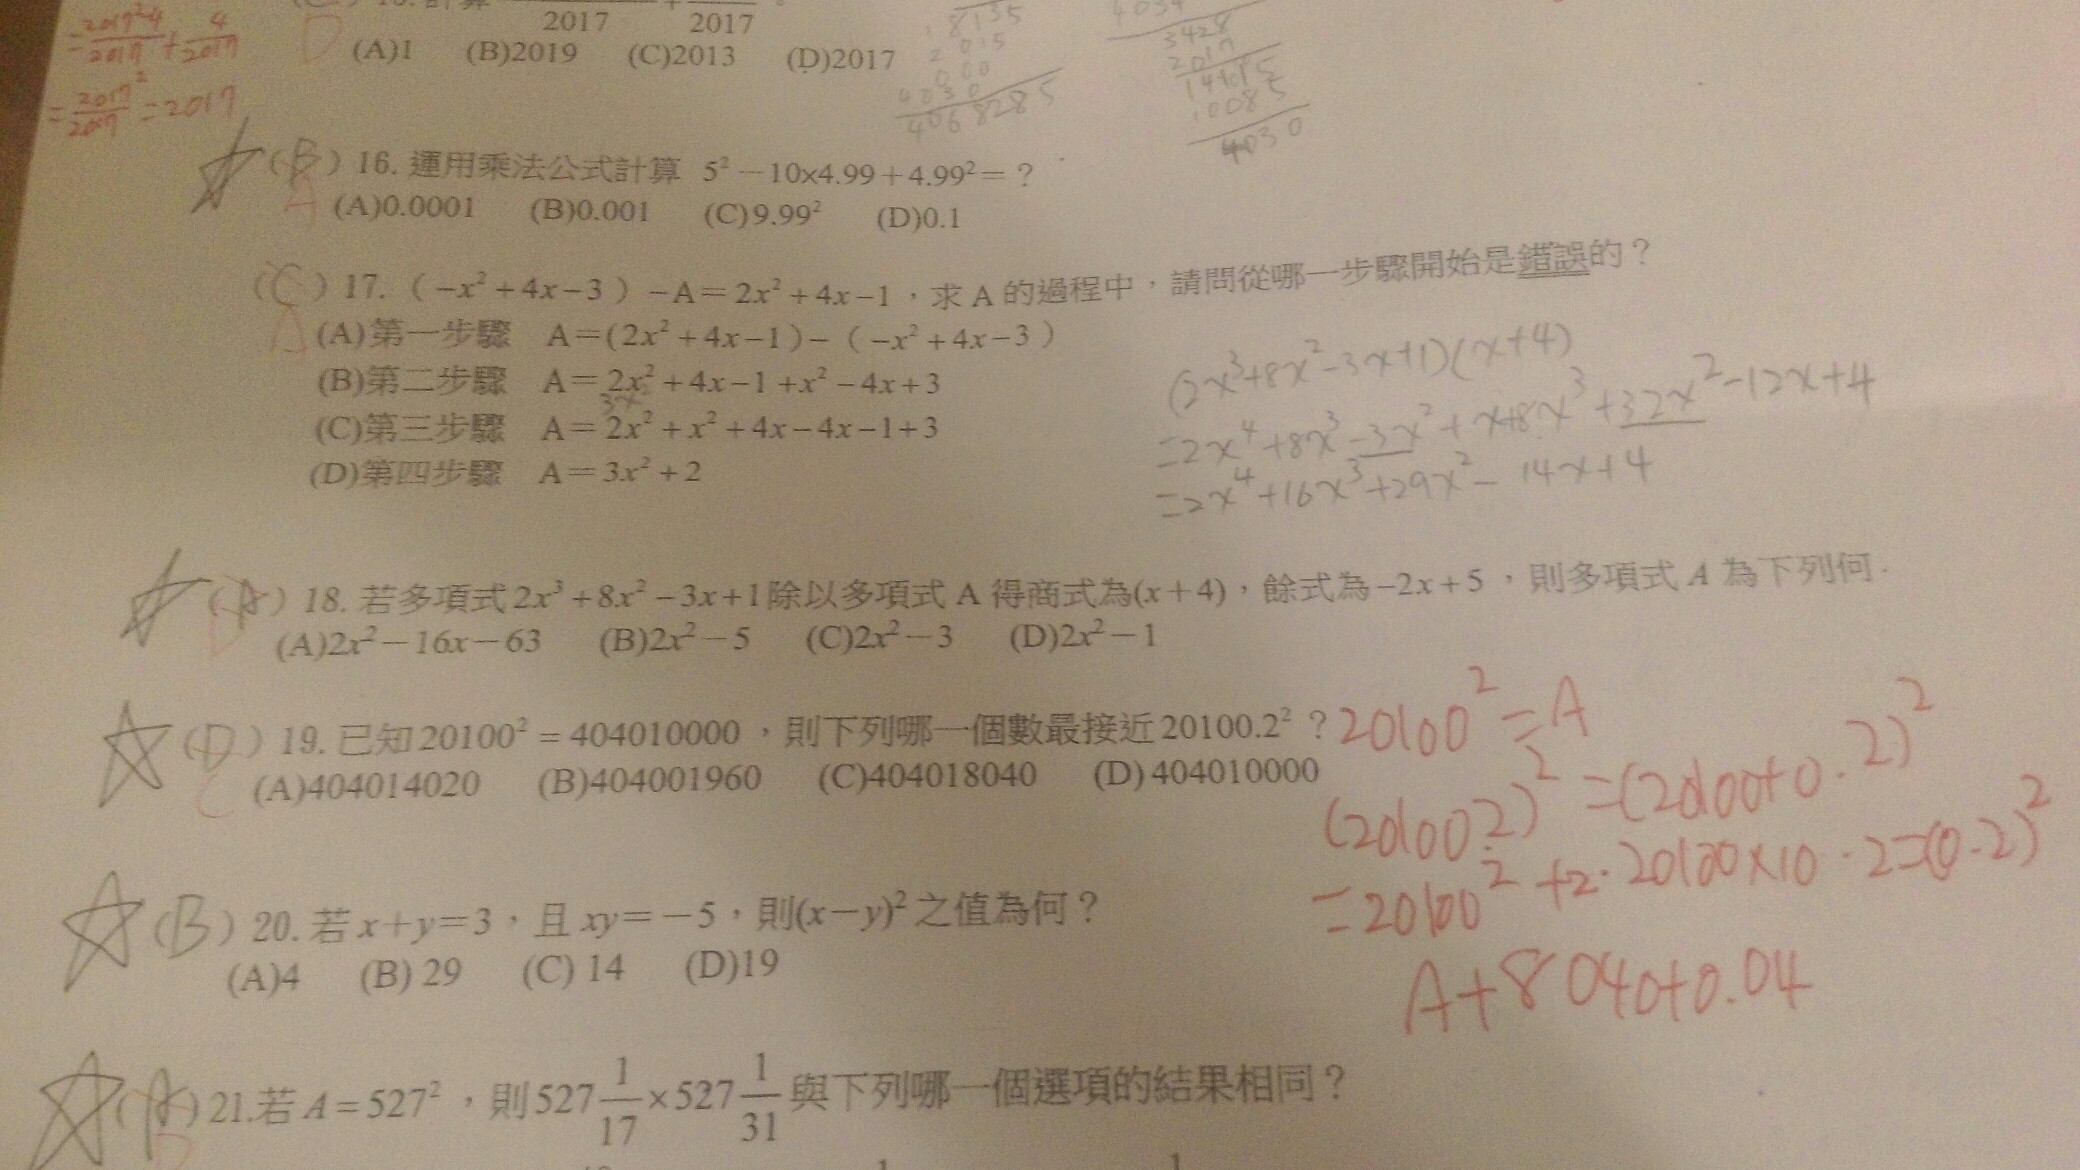 2017 2017
(A)1 (B)2019 (C)2013 (D)2017
= 2017²-4/2017 + 4/2017
= 2017²/2017 = 2017
8135
2015
000
4030
4068285
4034
3428
2017
14115
10085
4030
(B) 16. 運用乘法公式計算 5²－10×4.99＋4.99²＝？
A
(A)0.0001 (B)0.001 (C)9.99² (D)0.1
(C) 17.（-x²+4x-3）-A＝2x²+4x-1，求 A 的過程中，請問從哪一步驟開始是錯誤的？
A
(A)第一步驟 A＝(2x²+4x-1)-（-x²+4x-3）
(B)第二步驟 A＝2x²+4x-1+x²-4x+3
3x²
(C)第三步驟 A＝2x²+x²+4x-4x-1+3
(D)第四步驟 A＝3x²+2
(2x³+8x²-3x+1)(x+4)
=2x⁴+8x³-3x²+x+8x³+32x²-12x+4
=2x⁴+16x³+29x²-14x+4
(A) 18. 若多項式2x³+8x²-3x+1除以多項式 A 得商式為(x+4)，餘式為-2x+5，則多項式 A 為下列何
D
(A)2x²－16x－63 (B)2x²－5 (C)2x²－3 (D)2x²－1
(D) 19. 已知20100²=404010000，則下列哪一個數最接近20100.2²？
C
(A)404014020 (B)404001960 (C)404018040 (D)404010000
20100²=A
(20100.2)²=(20100+0.2)²
=20100²+2·20100×10·2=(0.2)²
A+8040+0.04
(B) 20. 若x+y=3，且 xy=-5，則(x-y)²之值為何？
(A)4 (B) 29 (C) 14 (D)19
(A) 21.若A=527²，則527 1/17×527 1/31與下列哪一個選項的結果相同？